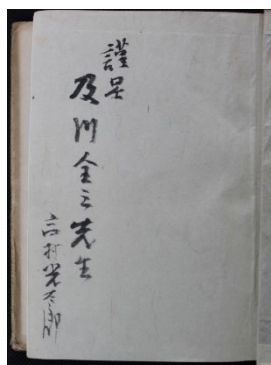 謹呈
及川全三先生
高村光太郎